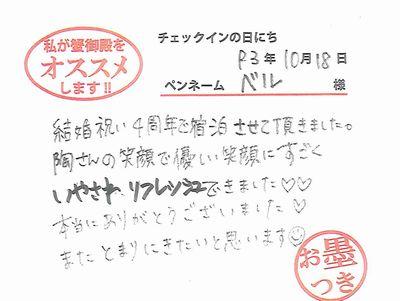 私が蟹御殿を
オススメ
します!!
チェックインの日にち
R3年10月18日
ペンネーム ベル 様
結婚祝い4周年で宿泊させて頂きました。
陶さんの笑顔で優しい笑顔にすごく
いやされ リフレッシュできました♡♡
本当にありがとうございました♡
またとまりにきたいと思います☺
お墨
つき